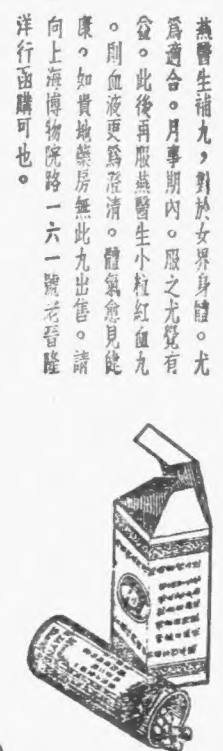 燕醫生補丸，對於女界身體。尤
爲適合。月事期內。服之尤覺有
益。此後再服燕醫生小粒紅血丸
。則血液更爲澄清。體氣愈見健
康。如貴地藥房無此丸出售。請
向上海博物院路一六一號老晉隆
洋行函購可也。